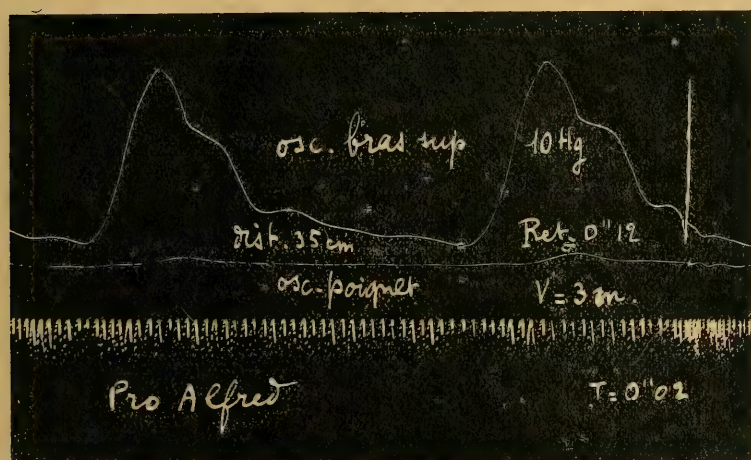 osc. bras sup 10 Hg
dist. 35 cm Ret = 0"12
osc. poignet V = 3 m.
Pro Alfred T = 0"02